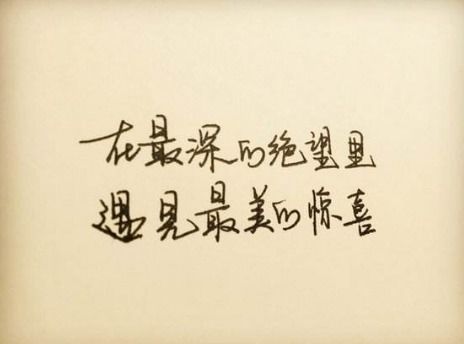 在最深的绝望里
遇见最美的惊喜